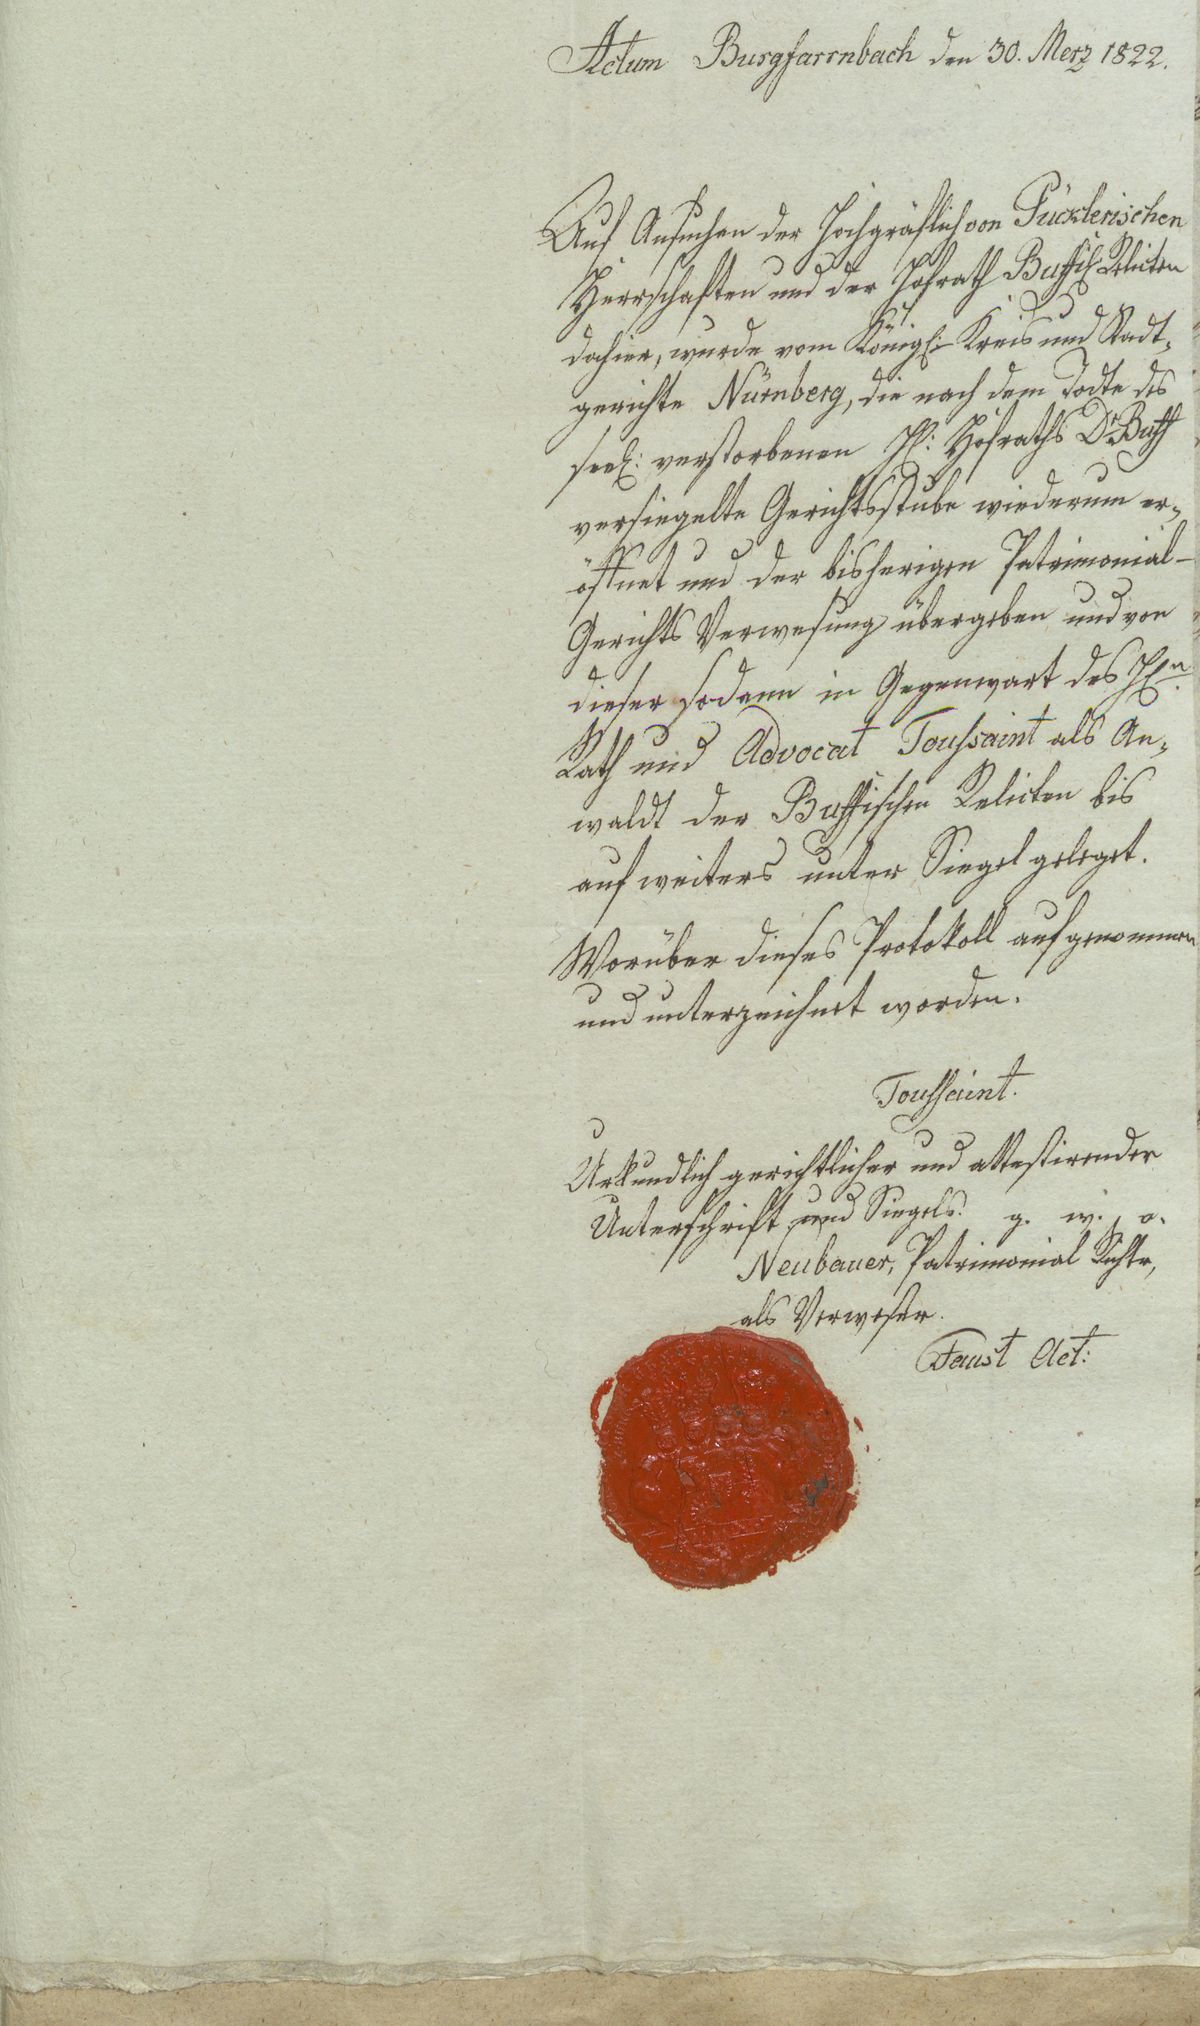 Actum Burgfarrnbach den 30. Merz 1822.
Auf Ansuchen der Hochgräflich von Pücklerischen
Herrschaften und der Hofrath Buffi: Relicten
dahier, wurde vom Königl: Kreis und Stadt-
gerichte Nürnberg, die nach dem Todte des
seel: verstorbenen H: Hofraths Dr Buff
versiegelte Gerichtsstube wiederum er-
öffnet und der bisherigen Patrimonial-
Gerichts Verwesung übergeben und von
dieser sodann in Gegenwart des Hn:
Rath und Advocat Toussaint als An-
waldt der Buffischen Relicten bis
auf weiters unter Siegel geleget.
Worüber dieses Protokoll aufgenommen
und unterzeichnet worden.
Toussaint.
Urkundlich gerichtlicher und attestirender
Unterschrift und Siegels. g. w. o.
Neubauer, Patrimonial Richtr,
als Verweser.
Faust Act: